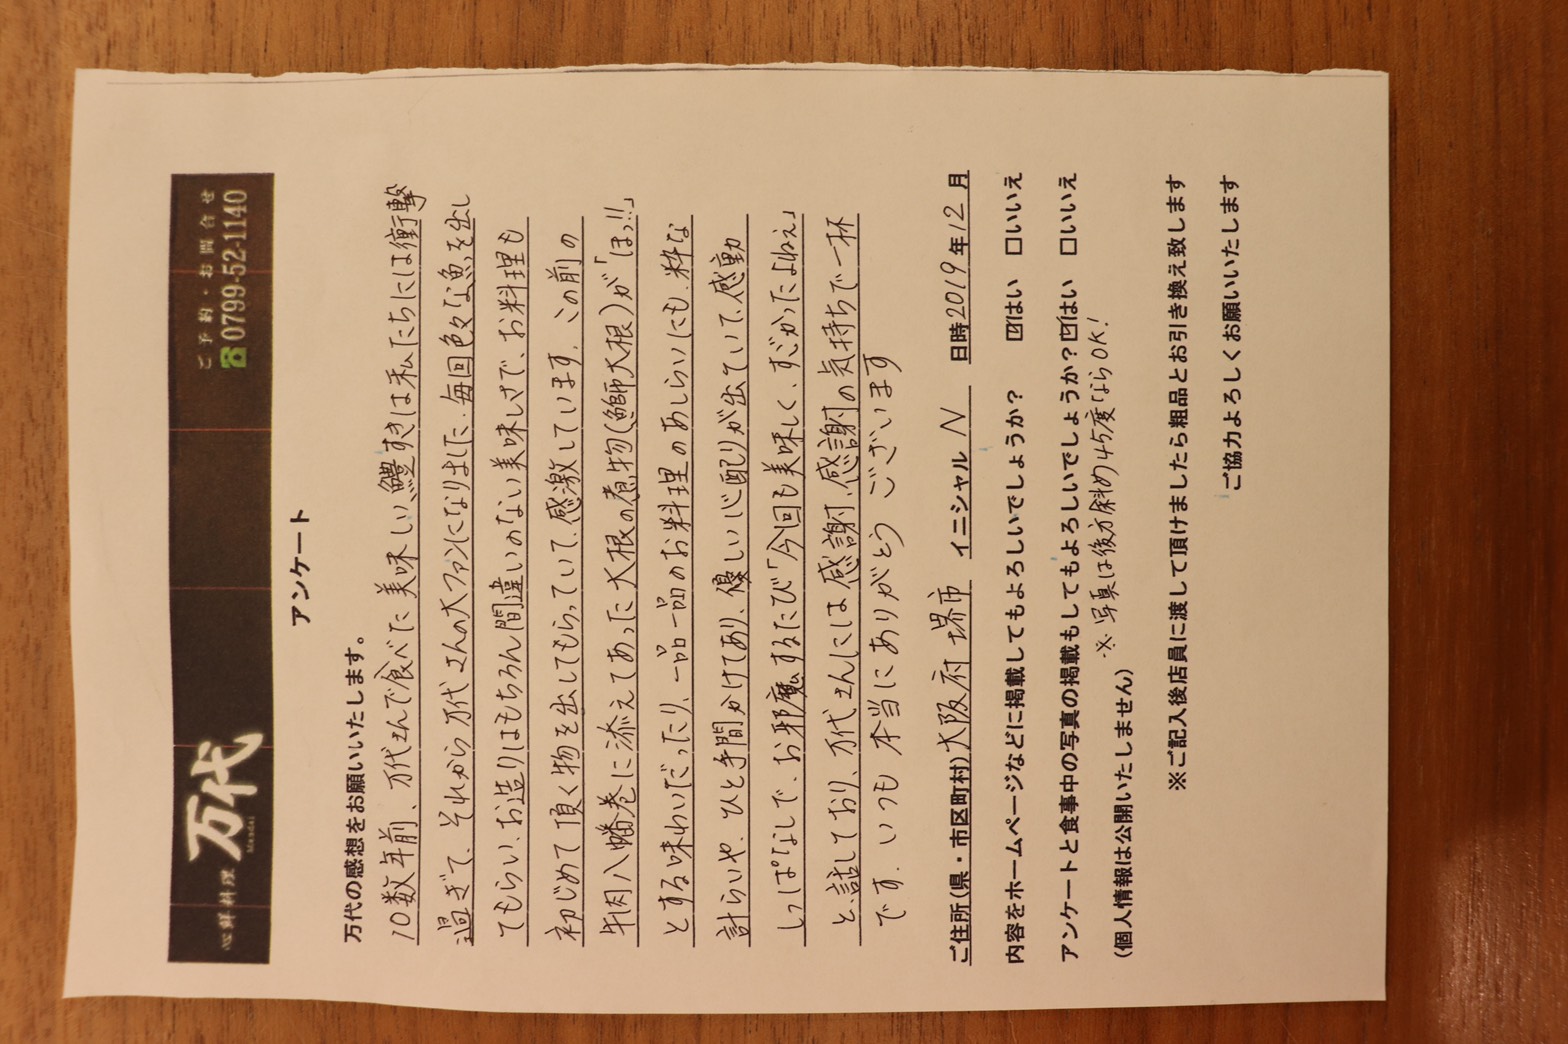 心鮮料理 万代 Mandai
ご予約・お問合せ
☎0799-52-1140
アンケート
万代の感想をお願いいたします。
10数年前、万代さんで食べた美味しい鱧すきは私たちには衝撃
過ぎて、それから万代さんの大ファンになりました、毎回色々な魚を出し
てもらい、お造りはもちろん間違いのない美味しさで、お料理も
初じめて頂く物を出してもらっていて、感激しています、この前の
牛肉八幡巻に添えてあった大根の煮物(鰤大根)が「ほっ!!」
とする味わいだったり、一品一品のお料理のあしらいにも、粋な
計らいや、ひと手間かけてあり、優しい心配りが出ていて、感動
しっぱなしで、お邪魔するたび「今回も美味しく、すごかったよねぇ」
と、話しており、万代さんには感謝、感謝の気持ちで一杯
です、いつも本当にありがとうございます
ご住所(県・市区町村)大阪府堺市 イニシャル N 日時2019年12月
内容をホームページなどに掲載してもよろしいでしょうか? ☑はい □いいえ
アンケートと食事中の写真の掲載もしてもよろしいでしょうか?☑はい □いいえ
(個人情報は公開いたしません) ※写真は後方斜め45度ならOK!
※ご記入後店員に渡して頂けましたら粗品とお引き換え致します
ご協力よろしくお願いいたします